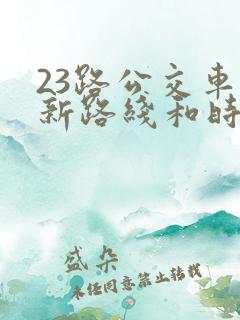 23路公交车
新路线和时
盛朵
未经同意禁止转载